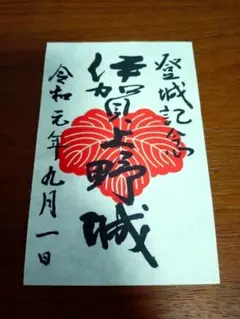 登城記念
伊賀上野城
令和元年九月一日